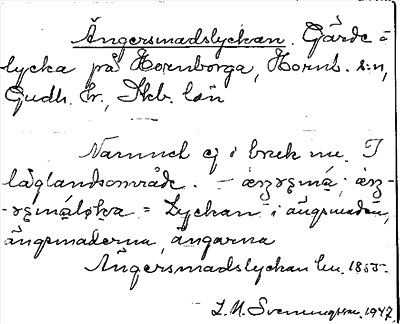 Ängersmadslyckan. Gärde =
lycka på Hornborga, Hornb. s:n,
Gudh. hr., Skb. län
Namnet ej i bruk nu. I
låglandsområde. –
= Lyckan i ängsmaden,
ängsmaderna, ängarna
Ängersmadslyckan lm. 1855.
Svenungsson. 1947.